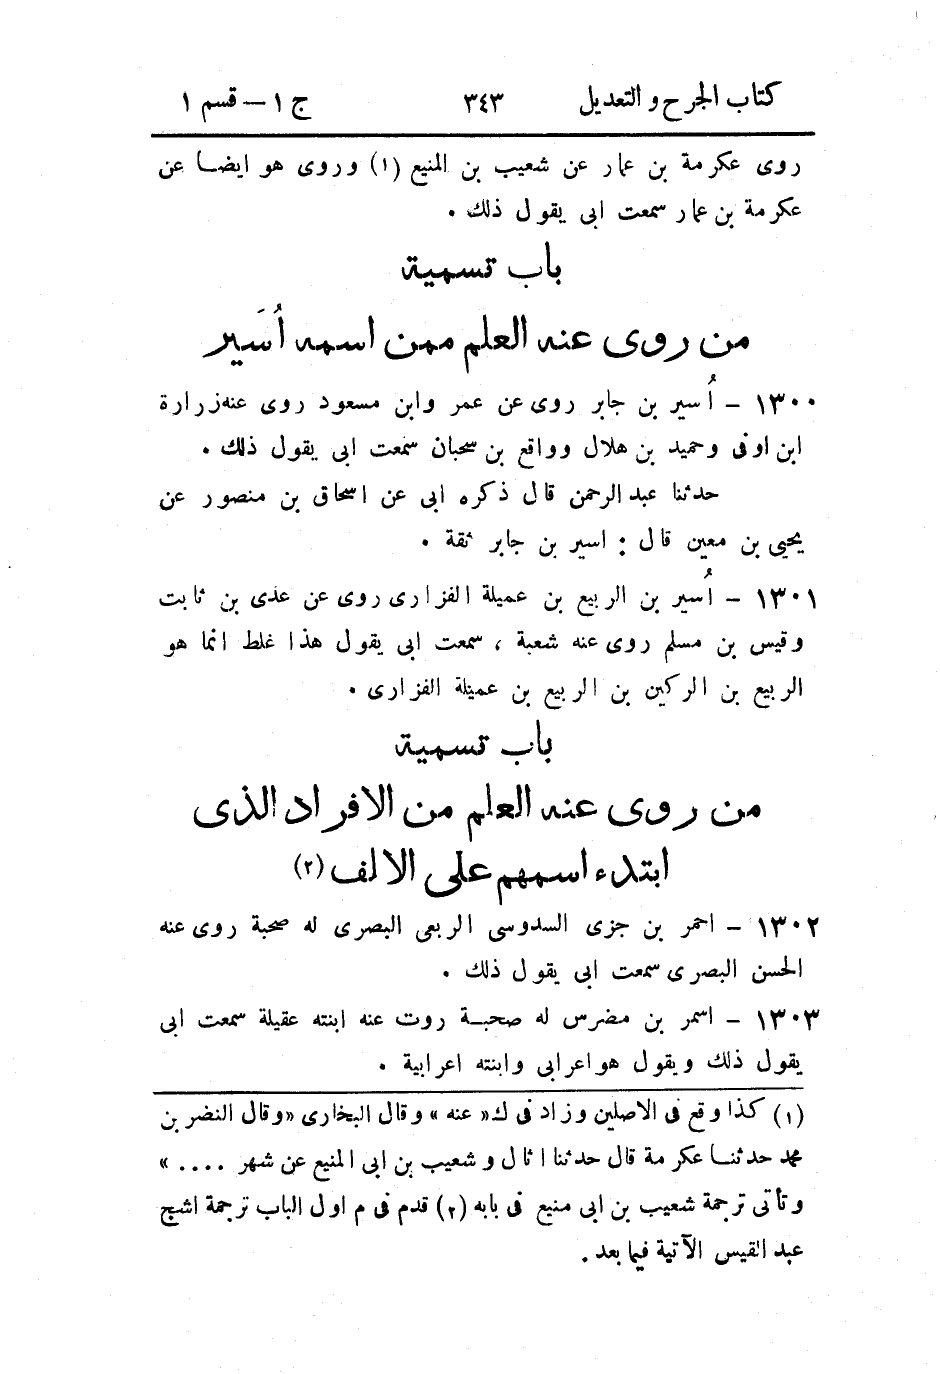 كتاب الجرح و التعديل ٣٤٣ ج ١ – قسم ١
روى عكرمة بن عمار عن شعيب بن المنيع (١) وروى هو ايضا عن
عكرمة بن عمار سمعت ابى يقول ذلك .
باب تسمية
من روى عنه العلم ممن اسمه اُسَير
١٣٠٠ – اُسير بن جابر روى عن عمر وابن مسعود روى عنه زرارة
ابن اوفى وحميد بن هلال وواقع بن سحبان سمعت ابى يقول ذلك .
حدثنا عبد الرحمن قال ذكره ابى عن اسحاق بن منصور عن
يحيى بن معين قال : اسير بن جابر ثقة .
١٣٠١ – اُسير بن الربيع بن عميلة الفزارى روى عن عدى بن ثابت
وقيس بن مسلم روى عنه شعبة ، سمعت ابى يقول هذا غلط انما هو
الربيع بن الركين بن الربيع بن عميلة الفزارى .
باب تسمية
من روى عنه العلم من الافراد الذى
ابتدء اسمهم على الالف (٢)
١٣٠٢ – احمر بن جزى السدوسى الربعى البصرى له صحبة روى عنه
الحسن البصرى سمعت ابى يقول ذلك .
١٣٠٣ – اسمر بن مضرس له صحبة روت عنه ابنته عقيلة سمعت ابى
يقول ذلك ويقول هو اعرابى وابنته اعرابية .
(١) كذا وقع فى الاصلين وزاد فى ك « عنه » وقال البخارى « وقال النضر بن
محمد حدثنا عكرمة قال حدثنا اثال و شعيب بن ابى المنيع عن شهر .... »
وتأتى ترجمة شعيب بن ابى منيع فى بابه (٢) قدم فى م اول الباب ترجمة اشج
عبد القيس الآتية فيما بعد .